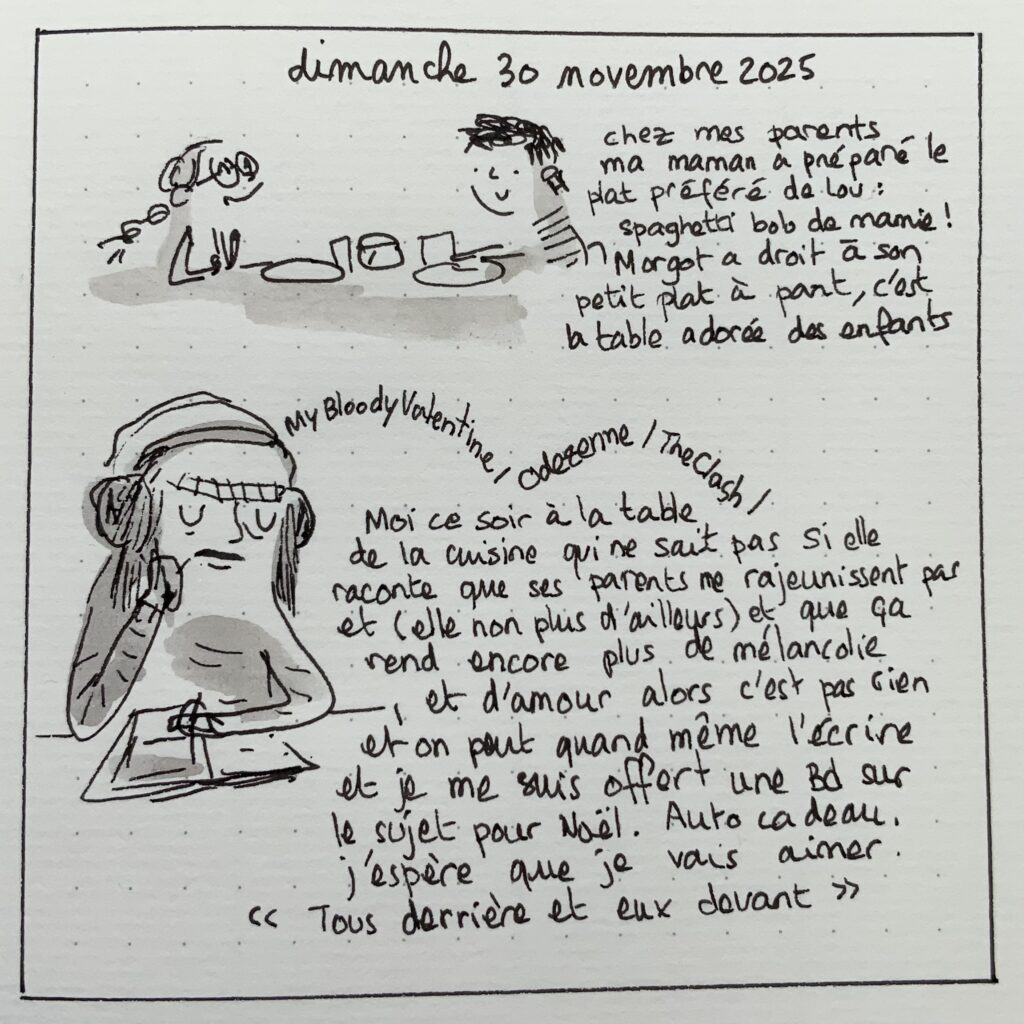 dimanche 30 novembre 2025
chez mes parents
ma maman a préparé le
plat préféré de Lou :
spaghetti bob de mamie !
Margot a droit à son
petit plat à part, c'est
la table adorée des enfants
My Bloody Valentine / Odezenne / The Clash /
Moi ce soir à la table
de la cuisine qui ne sait pas si elle
raconte que ses parents ne rajeunissent pas
et (elle non plus d'ailleurs) et que ça
rend encore plus de mélancolie
, et d'amour alors c'est pas rien
et on peut quand même l'écrire
et je me suis offert une Bd sur
le sujet pour Noël. Auto cadeau.
j'espère que je vais aimer.
« Tous derrière et eux devant »